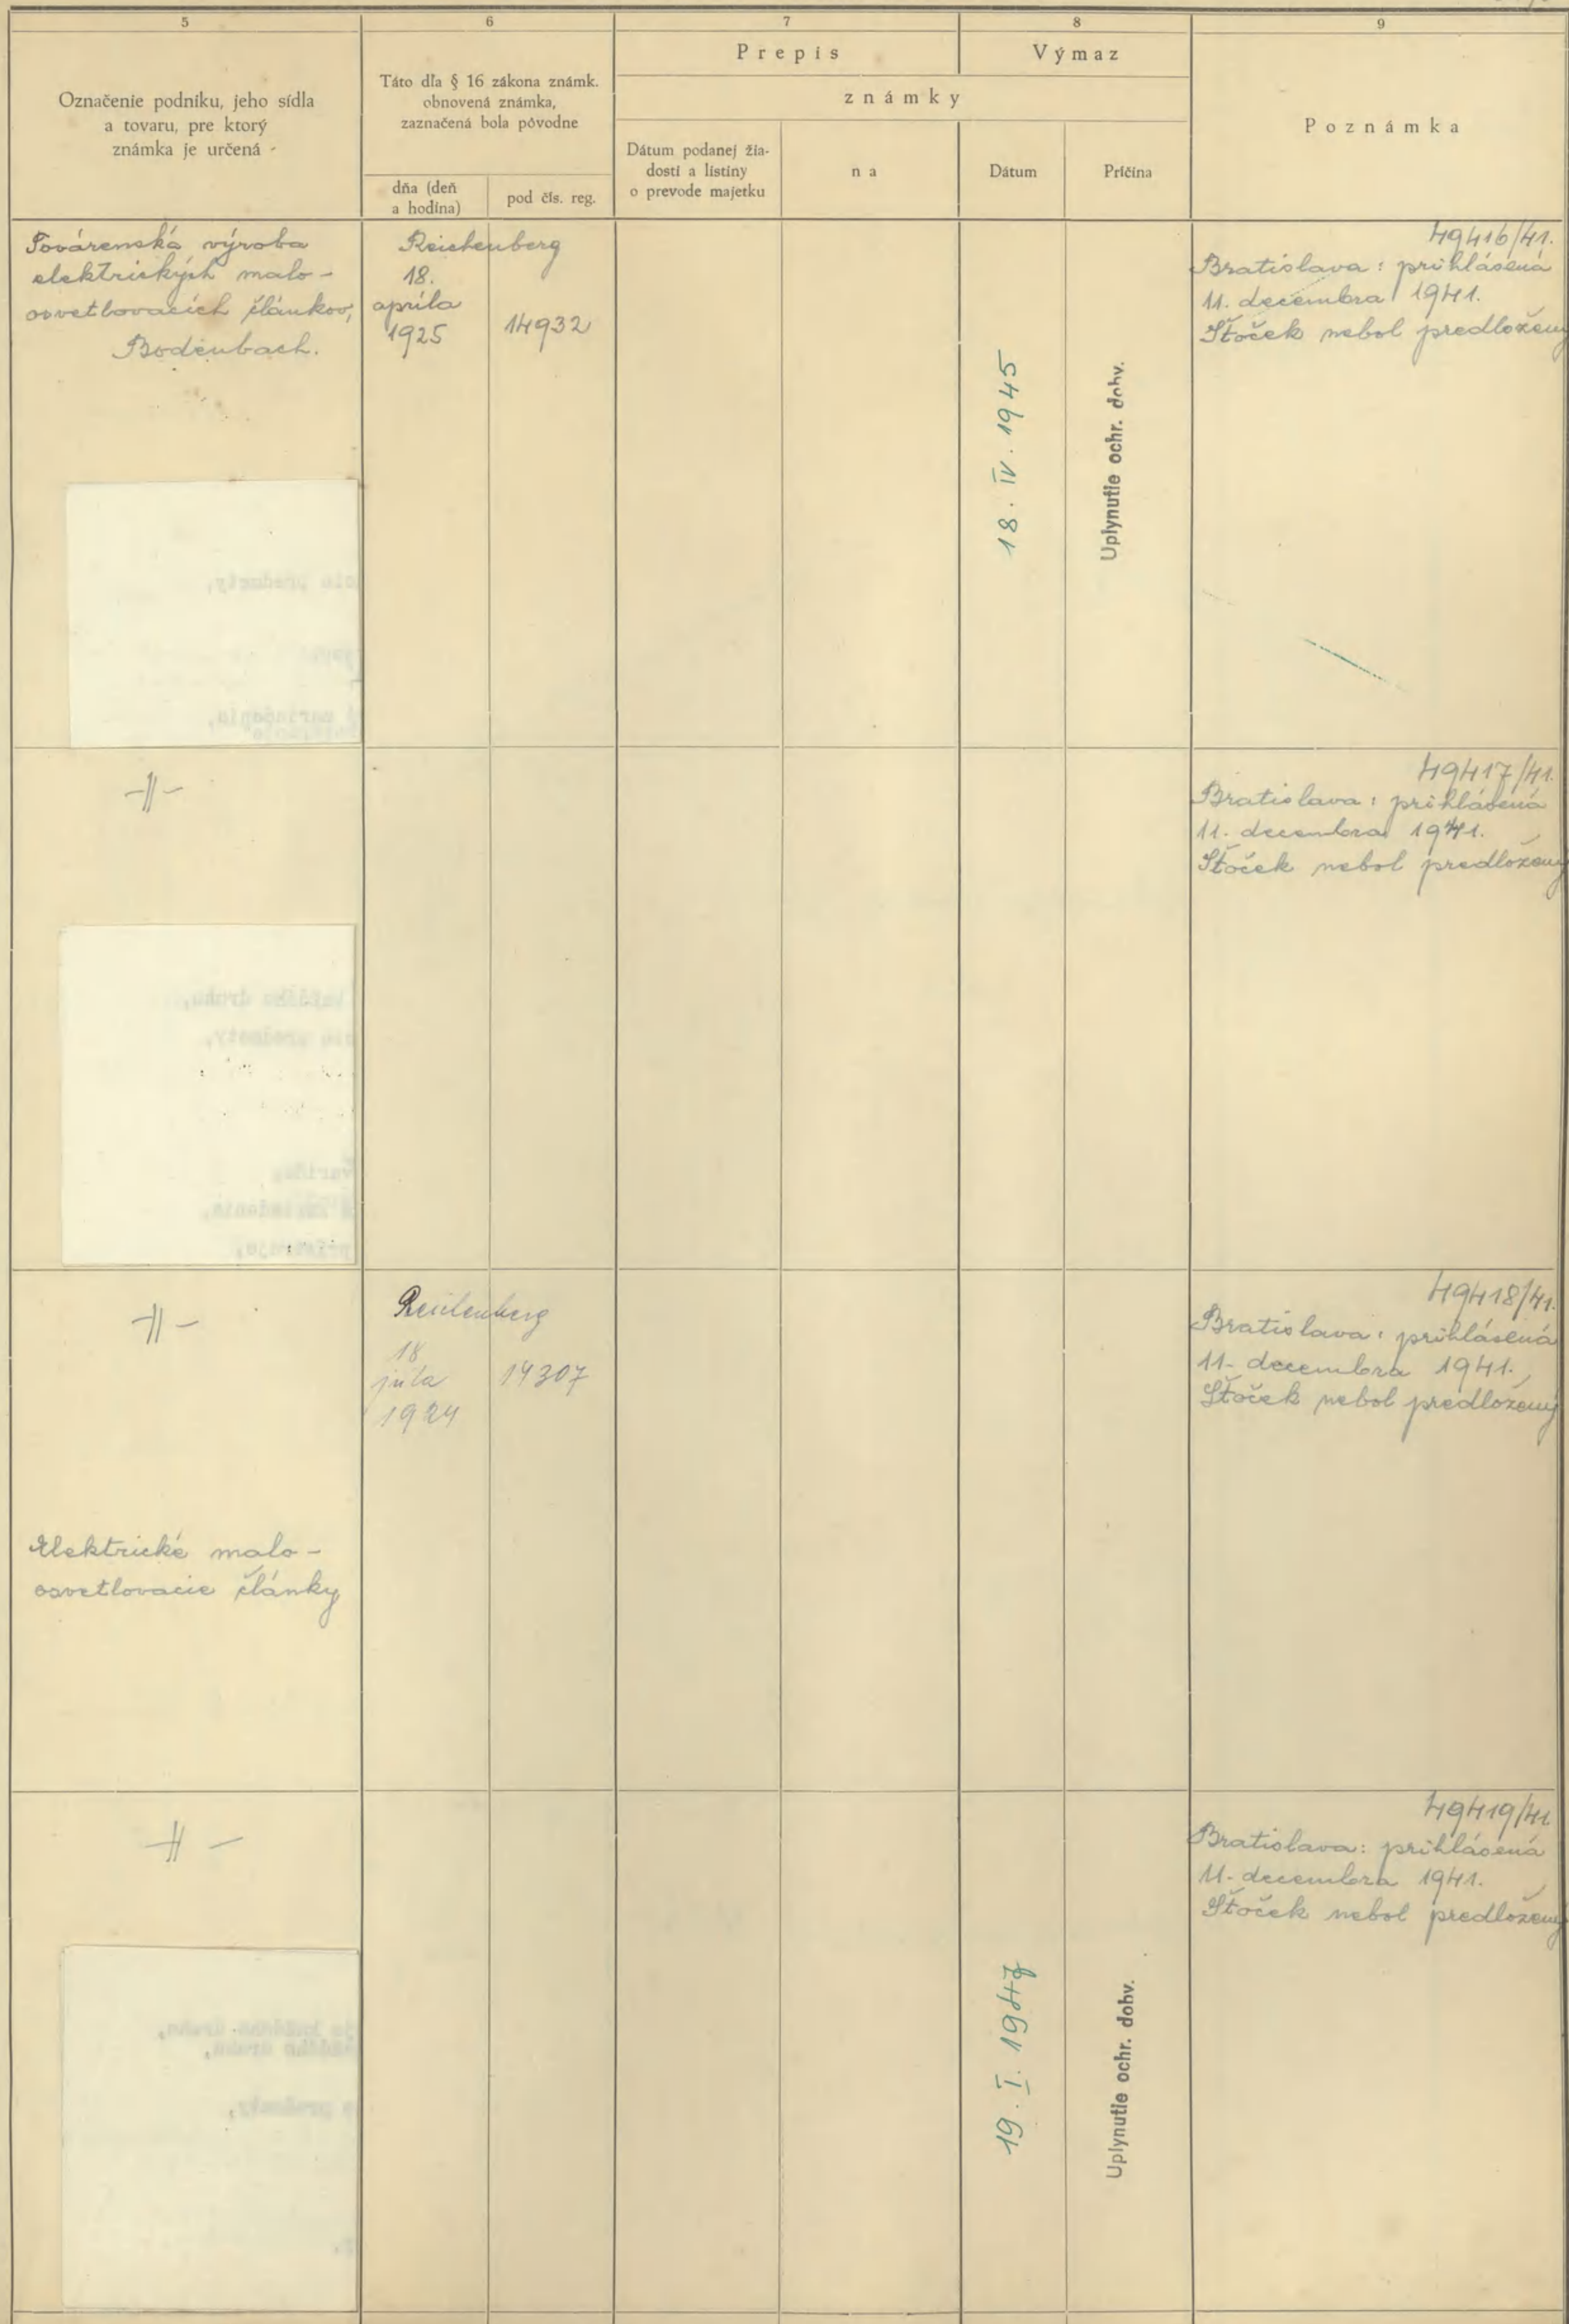 5
6
7
8
9
Označenie podniku, jeho sídla
a tovaru, pre ktorý
známka je určená
Táto dľa § 16 zákona známk.
obnovená známka,
zaznačená bola pôvodne
dňa (deň
a hodina)
pod čís. reg.
Prepis
Výmaz
známky
Dátum podanej žia-
dosti a listiny
o prevode majetku
na
Dátum
Príčina
Poznámka
Továrenská výroba
elektrických malo-
osvetlovacích článkov,
Bodenbach.
Reichenberg
18.
apríla
1925
14932
18. IV. 1945
Uplynutie ochr. dohv.
49416/41.
Bratislava: prihlásená
11. decembra 1941.
Štoček nebol predložený
-||-
49417/41.
Bratislava: prihlásená
11. decembra 1941.
Štoček nebol predložený
-||-
Reichenberg
18
júla
1924
14307
49418/41.
Bratislava: prihlásená
11. decembra 1941.
Štoček nebol predložený
Elektrické malo-
osvetlovacie články
-||-
19. I. 1947
Uplynutie ochr. dohv.
49419/41
Bratislava: prihlásená
11. decembra 1941.
Štoček nebol predložený